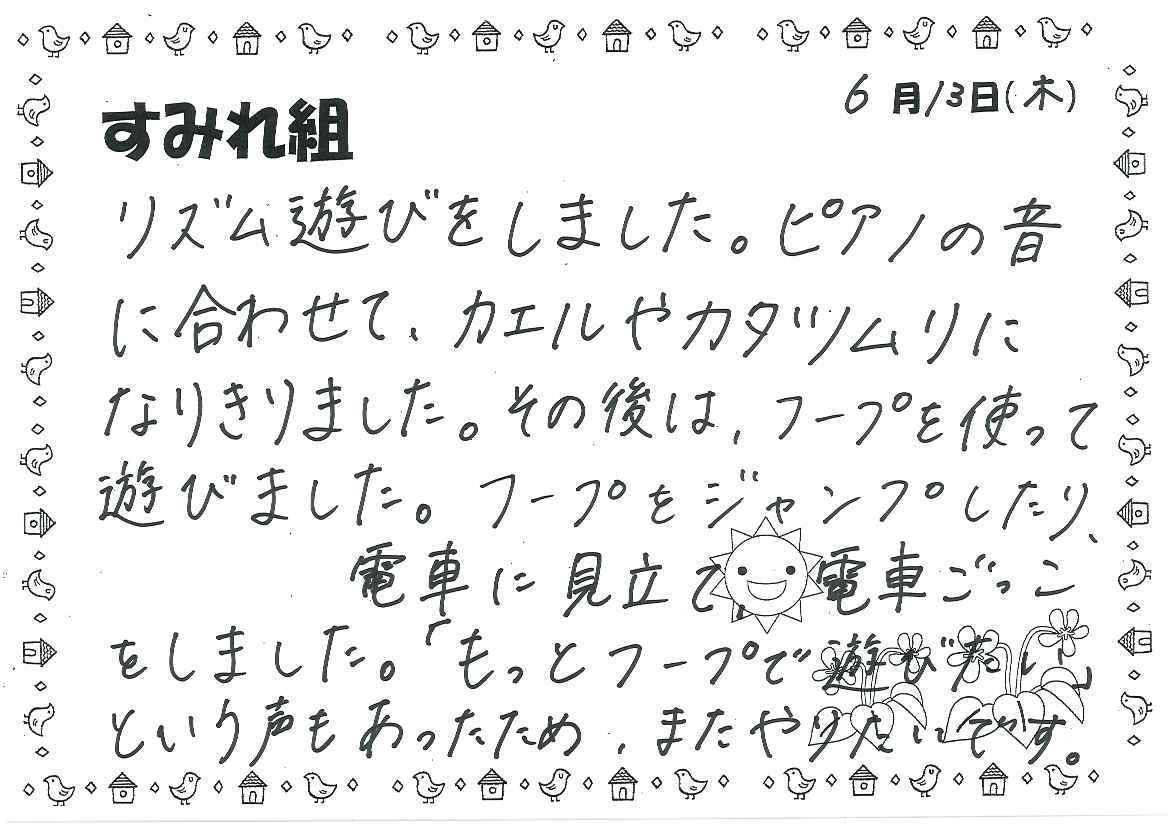 6月13日(木)
すみれ組
リズム遊びをしました。ピアノの音
に合わせて、カエルやカタツムリに
なりきりました。その後は、フープを使って
遊びました。フープをジャンプしたり、
電車に見立て、電車ごっこ
をしました。「もっとフープで遊びたい」
という声もあったため、またやりたいです。